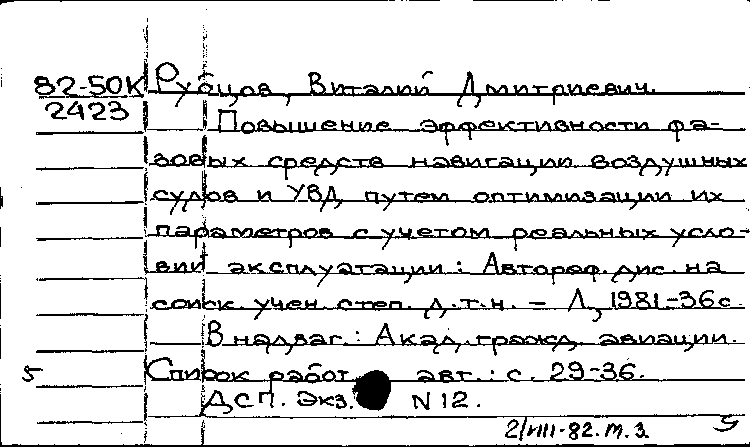 82-50К Рубцов, Виталий Дмитриевич.
2423
Повышение эффективности фа-
зовых средств навигации воздушных
судов и УВД путем оптимизации их
параметров с учетом реальных усло-
вий эксплуатации: Автореф. дис. на
соиск. учен. степ. д.т.н. - Л, 1981-36с.
В надзаг.: Акад. гражд. авиации.
5 Список работ авт.: с. 29-36.
ДСП. Экз. N 12.
2/VIII-82. т. з. 5